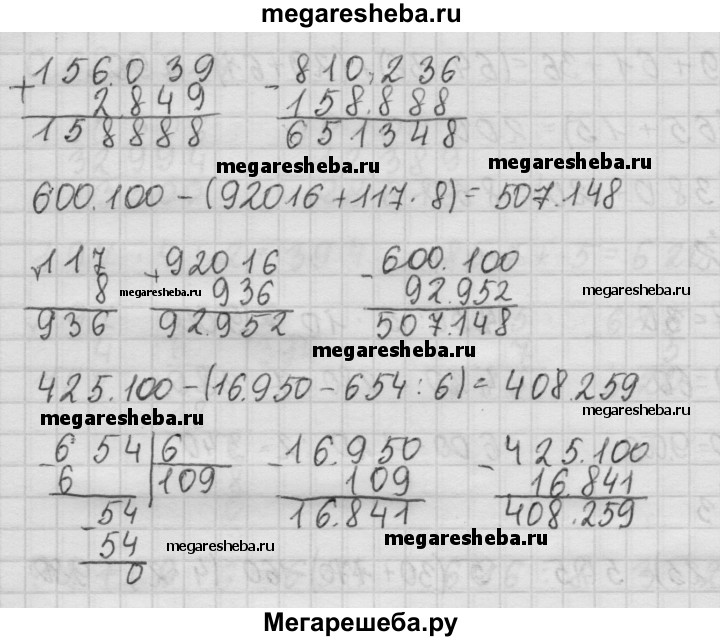 megaresheba.ru
156.039 - 810,236
+ 2.849 158.888
158888 651348
megaresheba.ru megaresheba.ru
600.100 - (92016 + 117 · 8) = 507.148
117 + 92016 - 600.100
8 megaresheba.ru 936 92.952 megaresheba.ru
936 92.952 507.148
megaresheba.ru
425.100 - (16.950 - 654 : 6) = 408.259
megaresheba.ru megaresheba.ru
- 654 | 6 - 16.950 - 425.100
6 109 109 16.841
- 54 16.841 408.259
54 megaresheba.ru megaresheba.ru
0
Мегарешеба.ру